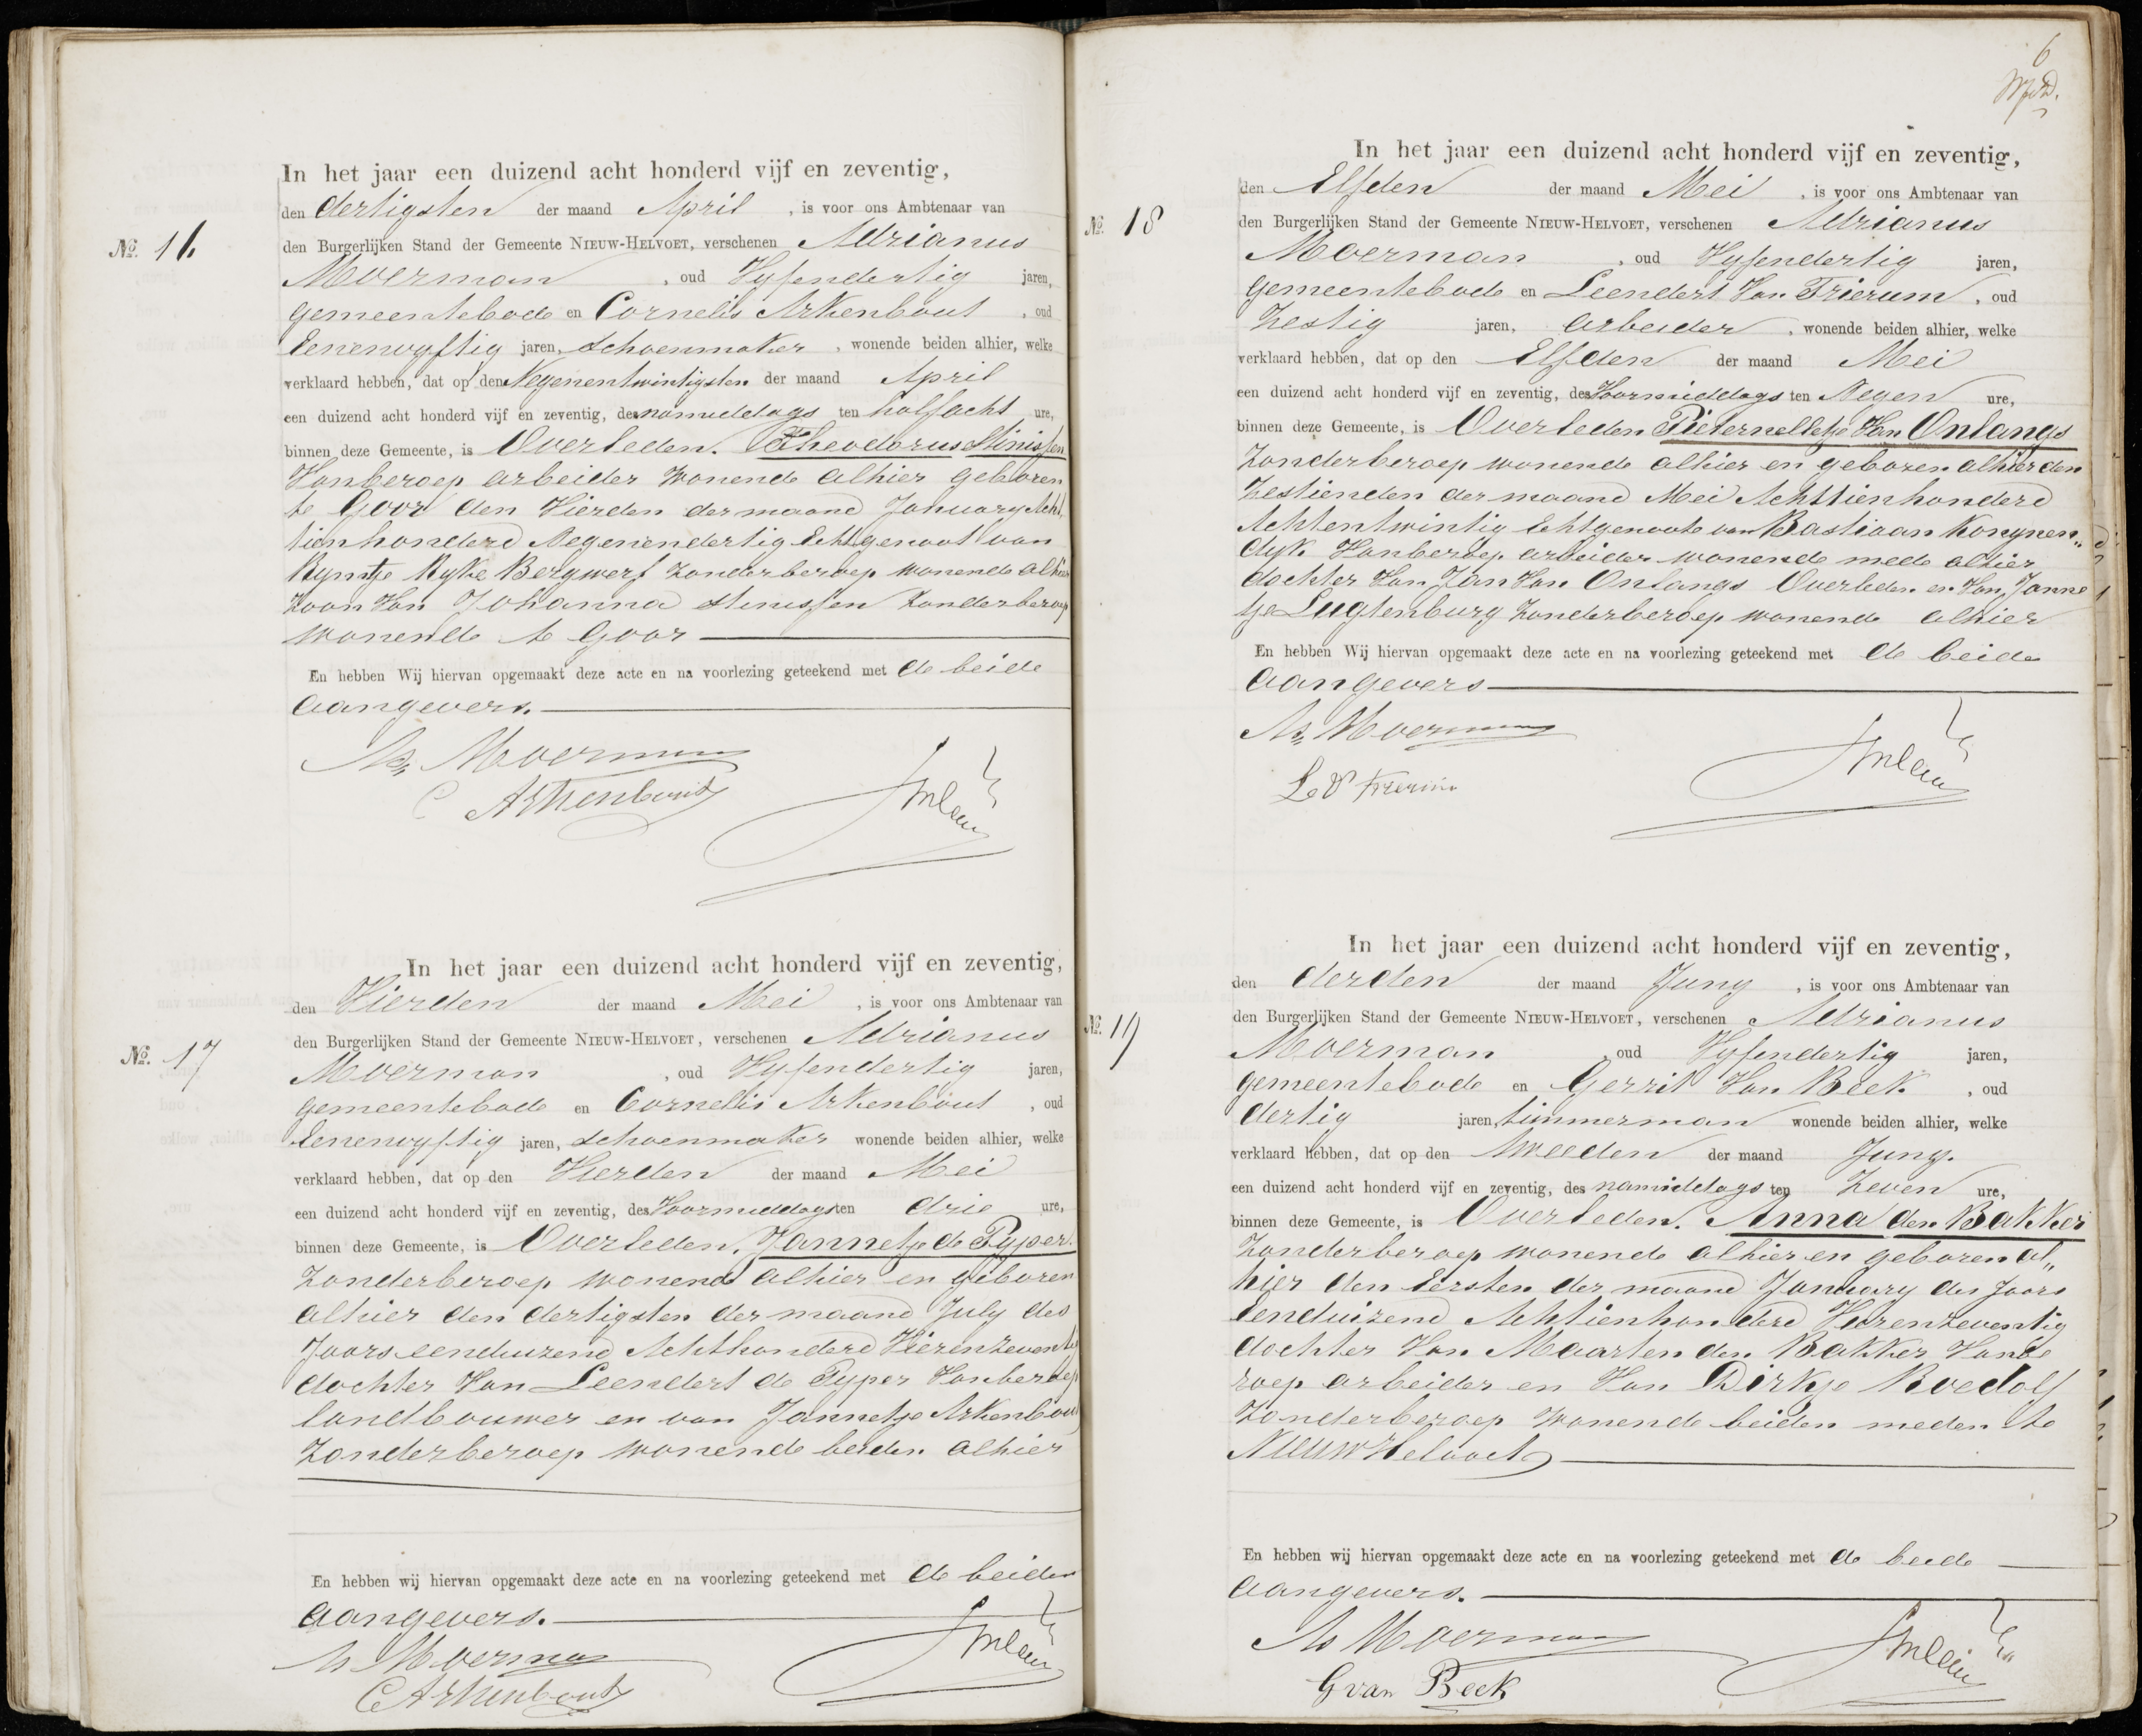 In het jaar een duizend acht honderd vijf en zeventig,
den dertigsten der maand April , is voor ons Ambtenaar van
No. 16 den Burgerlijken Stand der Gemeente NIEUW-HELVOET, verschenen Adrianus
Moerman , oud Vyfendertig jaren,
gemeentebode en Cornelis Arkenbout , oud
Eenenvyftig jaren, schoenmaker , wonende beiden alhier, welke
verklaard hebben, dat op den Negenentwintigsten der maand April
een duizend acht honderd vijf en zeventig, des namiddags ten halfacht ure,
binnen deze Gemeente, is Overleden. Theodorus Stinissen
Vanberoep arbeider wonende alhier geboren
te Goor den Vierden der maand January Acht
tienhonderd Negenendertig Echtgenoot van
Ryntje Ryke Bergwerf zonderberoep wonende alhier
zoon Van Johanna Stinissen zonderberoep
wonende te Goor
En hebben Wij hiervan opgemaakt deze acte en na voorlezing geteekend met de beide
aangevers.
As Moerman
C Arkenbout
In het jaar een duizend acht honderd vijf en zeventig,
den Vierden der maand Mei , is voor ons Ambtenaar van
den Burgerlijken Stand der Gemeente NIEUW-HELVOET, verschenen Adrianus
No. 17 Moerman , oud Vyfendertig jaren,
gemeentebode en Cornelis Arkenbout , oud
Eenenvyftig jaren, schoenmaker wonende beiden alhier, welke
verklaard hebben, dat op den Vierden der maand Mei
een duizend acht honderd vijf en zeventig, des Voormiddags ten drie ure,
binnen deze Gemeente, is Overleden. Jannetje de Pyper
Zonderberoep wonend alhier en geboren
alhier den dertigsten der maand July des
Jaars eenduizend Achthonderd Vierenzeventig
dochter Van Leendert de Pyper Vanberoep
landbouwer en van Jannetje Arkenbout
Zonderberoep wonende beiden alhier
En hebben wij hiervan opgemaakt deze acte en na voorlezing geteekend met de beiden
aangevers.
As Moerman
C Arkenbout
6
In het jaar een duizend acht honderd vijf en zeventig,
den Elfden der maand Mei , is voor ons Ambtenaar van
No. 18 den Burgerlijken Stand der Gemeente NIEUW-HELVOET, verschenen Adrianus
Moerman , oud Vyfendertig jaren,
gemeentebode en Leendert Van Trierum , oud
Zestig jaren, arbeider , wonende beiden alhier, welke
verklaard hebben, dat op den Elfden der maand Mei
een duizend acht honderd vijf en zeventig, des Voormiddags ten Negen ure,
binnen deze Gemeente, is Overleden Pieternelletje Van Onlangs
Zonderberoep wonende alhier en geboren alhier den
Zestienden der maand Mei Achttienhonderd
Achtentwintig Echtgenoote van Bastiaan Konynen„
dyk Vanberoep arbeider wonende mede alhier
dochter Van Jan Van Onlangs Overleden en Van Janne
tje Lugtenburg Zonderberoep wonende alhier
En hebben Wij hiervan opgemaakt deze acte en na voorlezing geteekend met de beide
aangevers
As Moerman
L v Trierum
In het jaar een duizend acht honderd vijf en zeventig,
den derden der maand Juny , is voor ons Ambtenaar van
No. 19 den Burgerlijken Stand der Gemeente NIEUW-HELVOET, verschenen Adrianus
Moerman , oud Vyfendertig jaren,
gemeentebode en Gerrit Van Beek , oud
dertig jaren, timmerman wonende beiden alhier, welke
verklaard hebben, dat op den tweeden der maand Juny.
een duizend acht honderd vijf en zeventig, des namiddags ten Zeven ure,
binnen deze Gemeente, is Overleden. Anna den Bakker
Zonderberoep wonende alhier en geboren al„
hier den Eersten der maand January des Jaars
Eenduizend Achtienhonderd Vierenzeventig
dochter Van Maarten den Bakker Vanbe
roep arbeider en Van Dirkje Roedolf
Zonderberoep wonende beiden meden te
Nieuw Helvoet
En hebben wij hiervan opgemaakt deze acte en na voorlezing geteekend met de beide
aangevers.
As Moerman
G van Beek